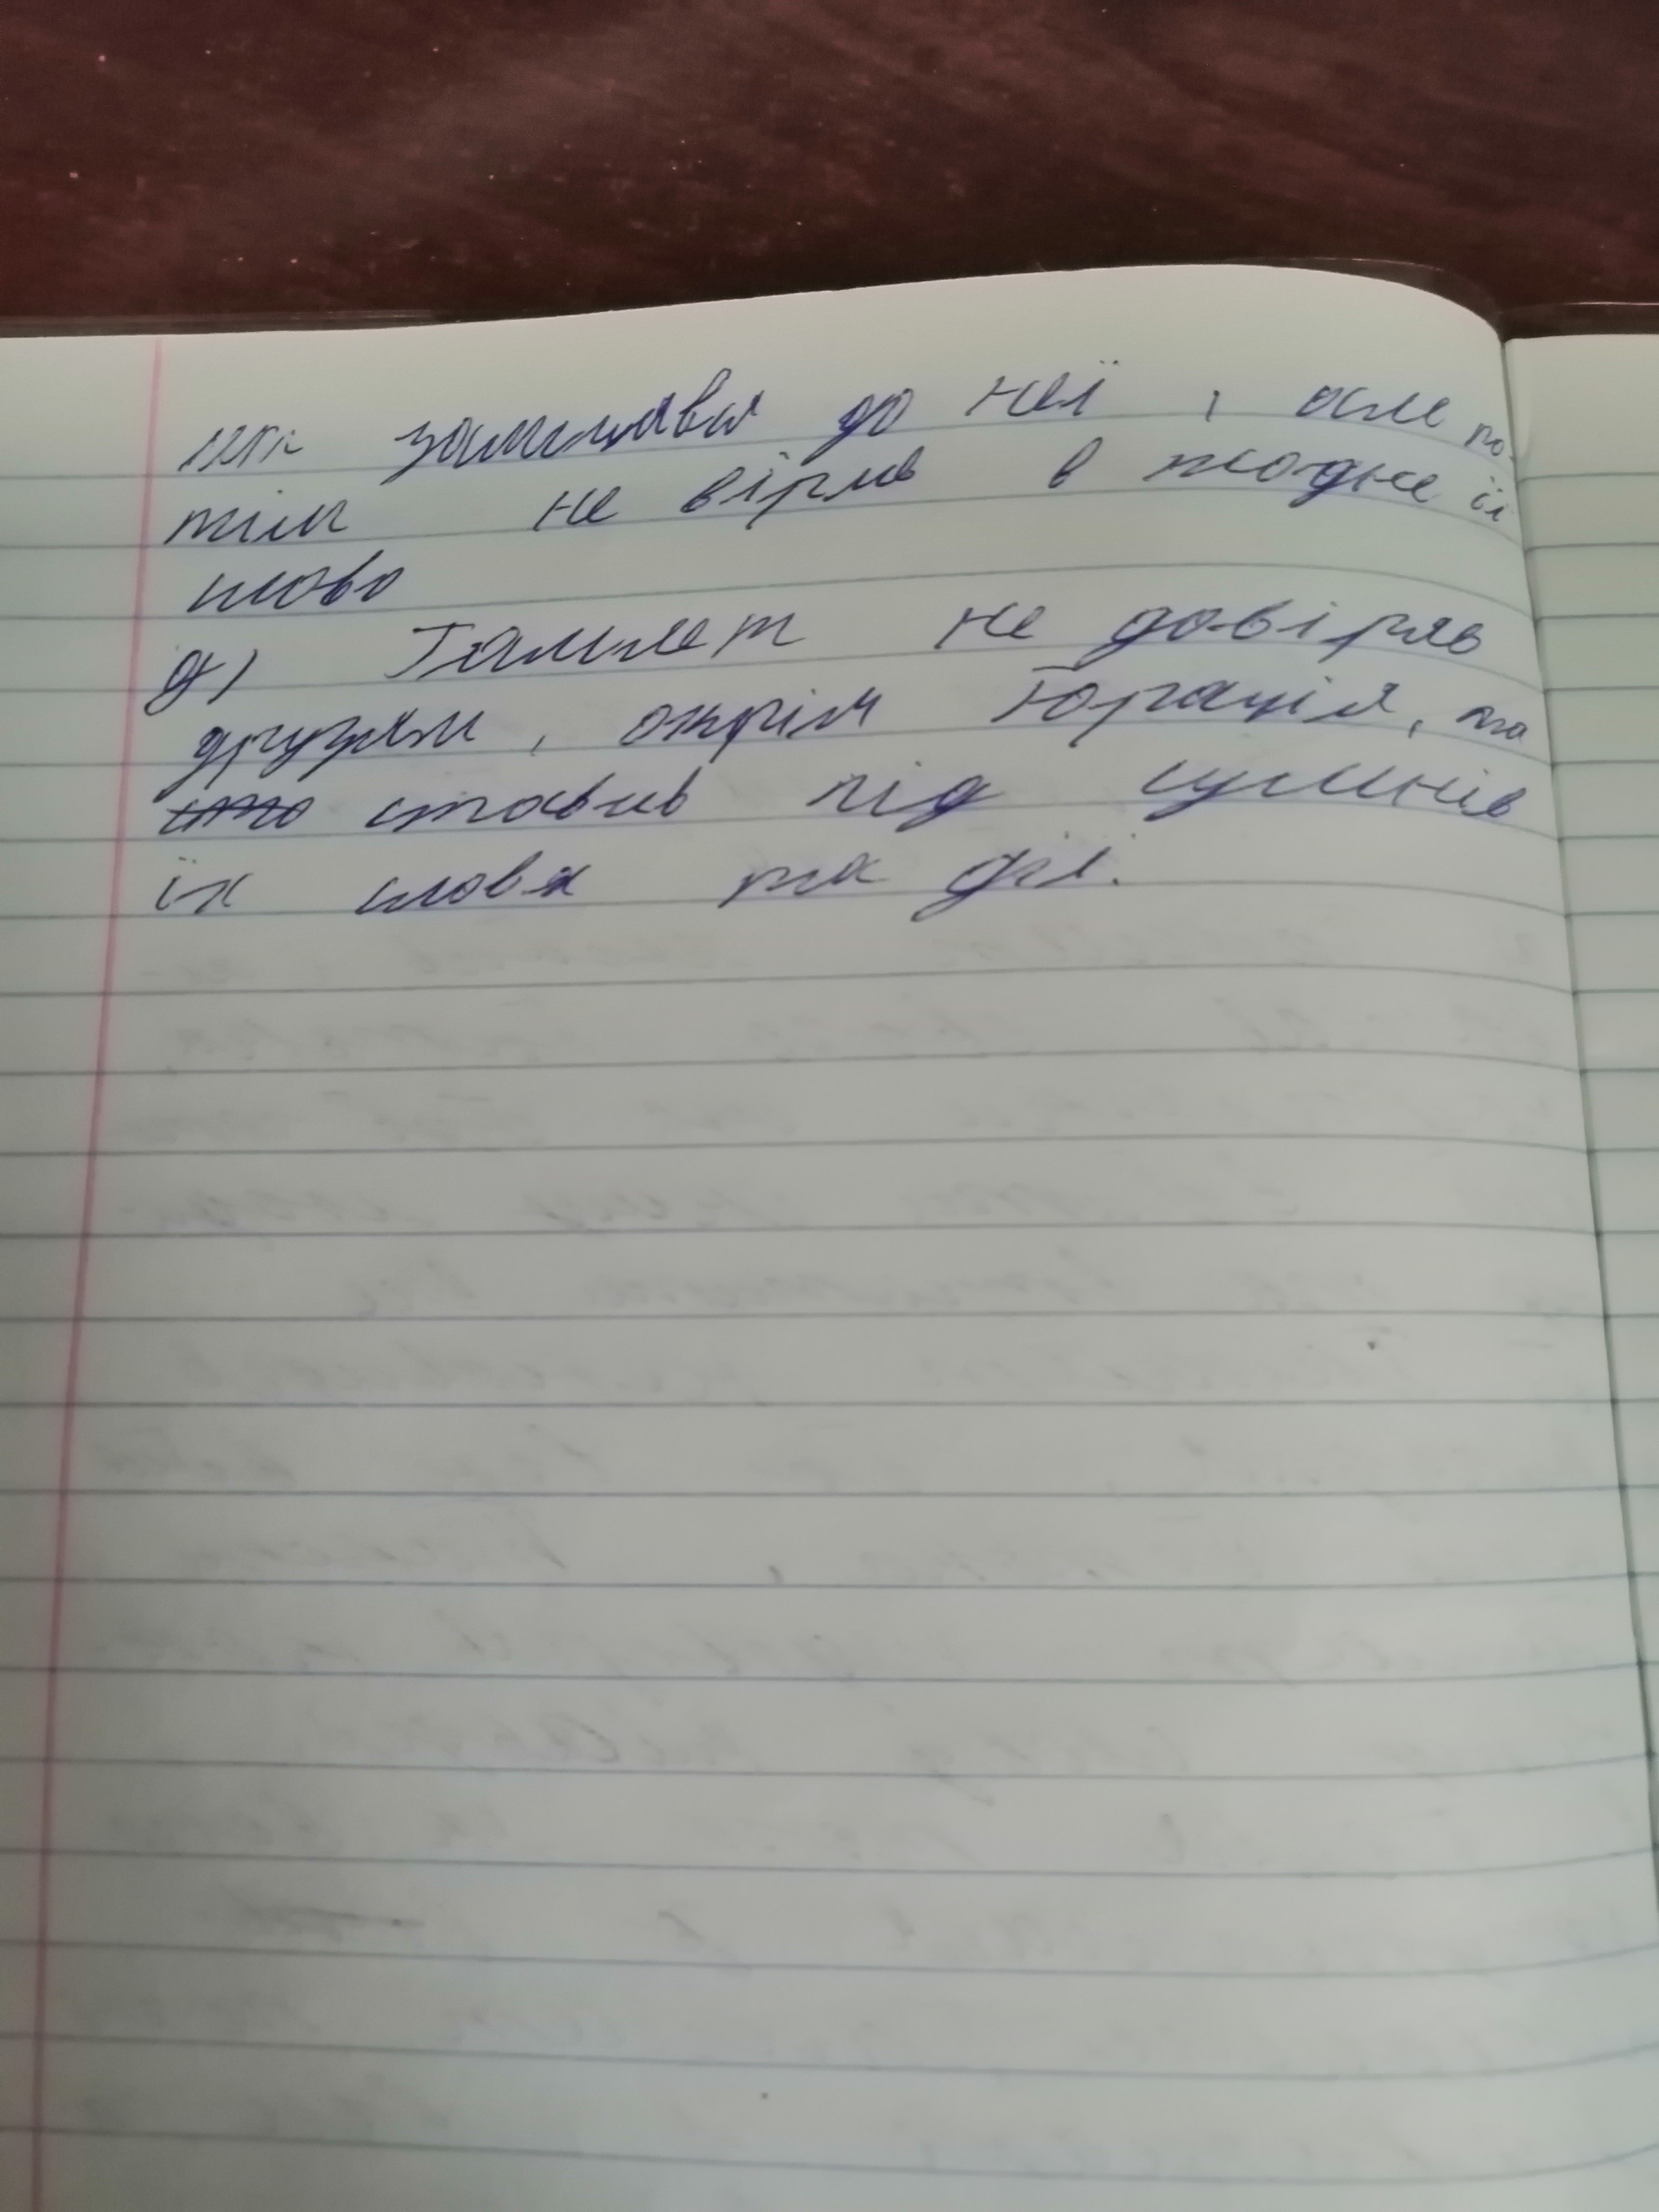 залицявся до неї, але по-
тім не вірив в жодне її
слово
д) Гамлет не довіряв
друзям, окрім Гораціо, та
ставив під сумнів
їх слова та дії.